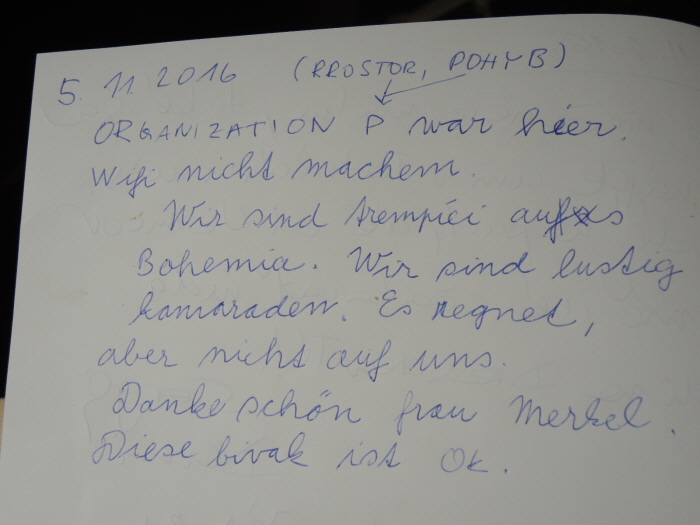 5. 11. 2016 (PROSTOR, POHYB)
ORGANIZATION P war hier.
Wifi nicht machem.
Wir sind trempíci aus
Bohemia. Wir sind lustig
kamaraden. Es regnet,
aber nicht auf uns.
Danke schön frau Merkel.
Diese bivak ist Ok.